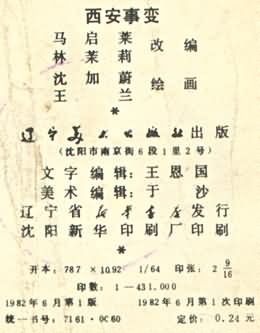 西安事变
马启莱
林茉莉 改编
沈加蔚
王兰 绘画
*
辽宁美术出版社出版
(沈阳市南京街6段1里2号)
文字编辑:王恩国
美术编辑:于沙
辽宁省新华书店发行
沈阳新华印刷厂印刷
*
开本:787×1092 1/64 印张:2 9/16
印数:1—431.000
1982年6月第1版 1982年6月第1次印刷
统一书号:7161·0C60 定价:0.24元